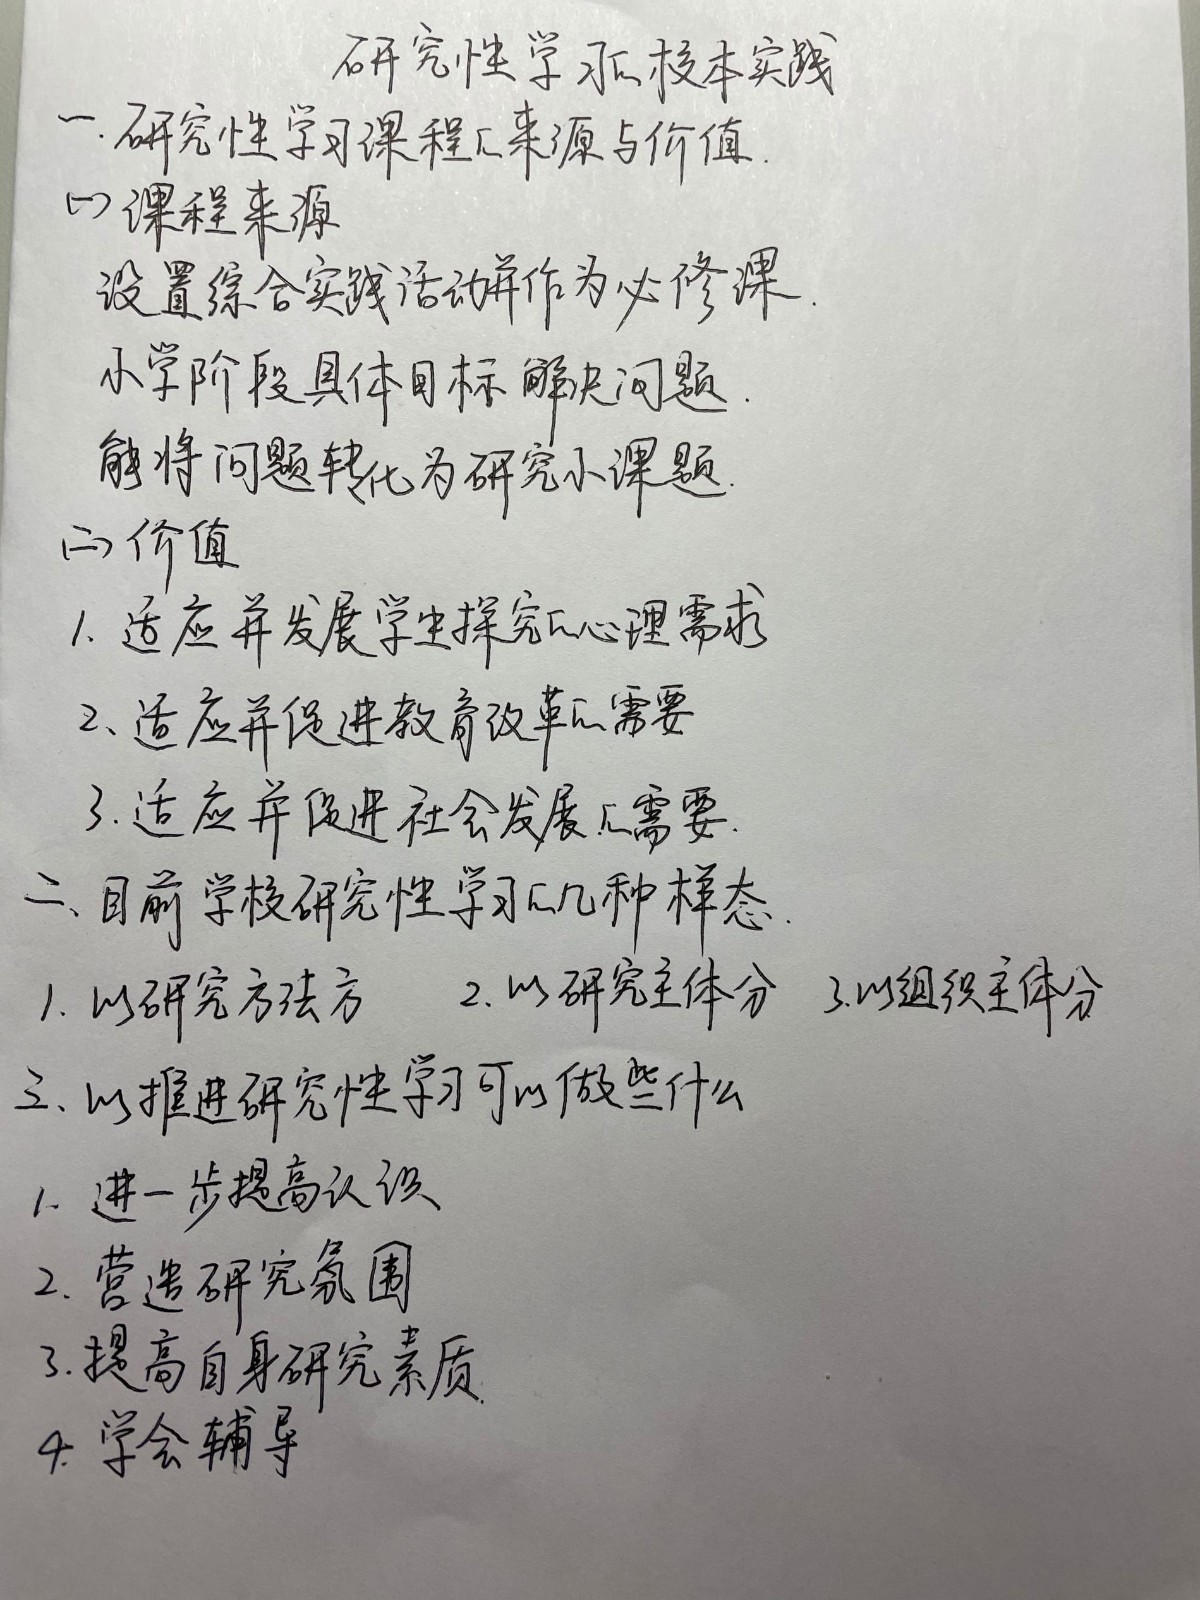 研究性学习的校本实践
一.研究性学习课程的来源与价值.
(一)课程来源
设置综合实践活动并作为必修课.
小学阶段具体目标解决问题.
能将问题转化为研究小课题.
(二)价值
1.适应并发展学生探究的心理需求
2、适应并促进教育改革的需要
3.适应并促进社会发展的需要.
二、目前学校研究性学习的几种样态.
1.以研究方法方 2.以研究主体分 3.以组织主体分
三、以推进研究性学习可以做些什么
1.进一步提高认识
2.营造研究氛围
3.提高自身研究素质.
4.学会辅导